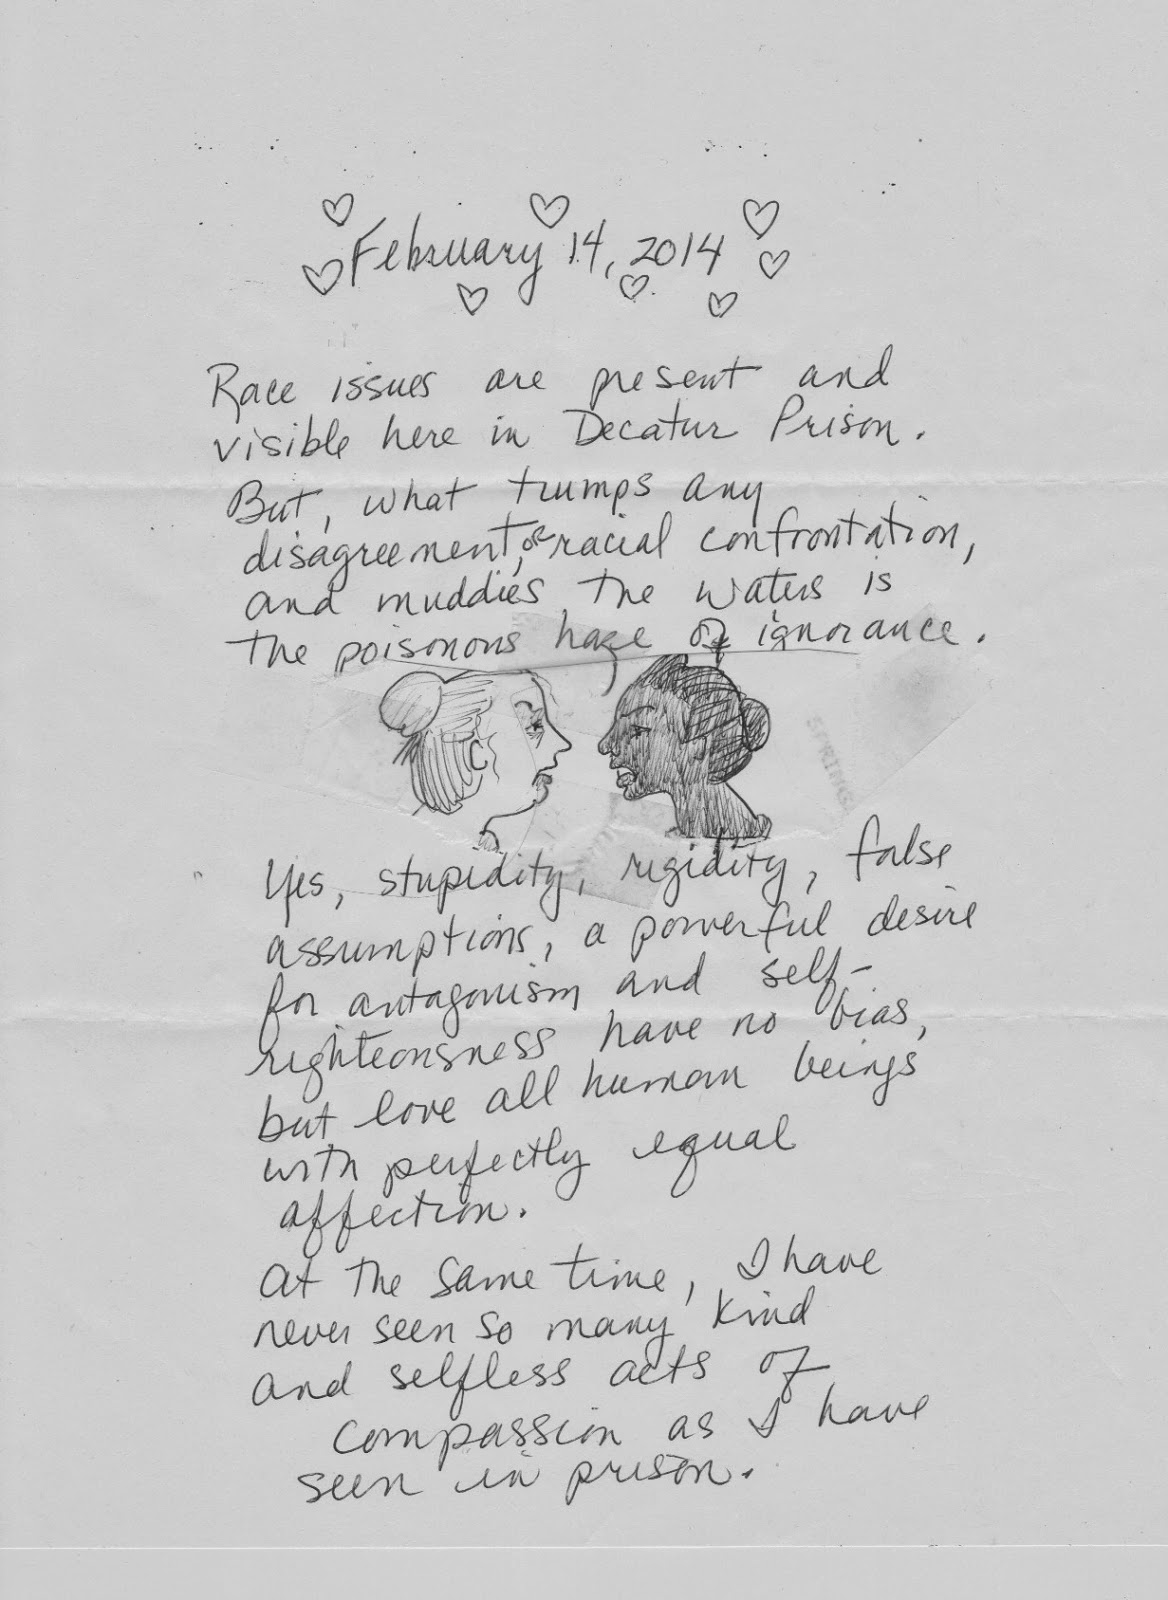 February 14, 2014
Race issues are present and
visible here in Decatur Prison.
But, what trumps any
disagreement, or racial confrontation,
and muddies the waters is
the poisonous haze of ignorance.
SPRING
Yes, stupidity, rigidity, false
assumptions, a powerful desire
for antagonism and self-
righteousness have no bias,
but love all human beings
with perfectly equal
affection.
At the same time, I have
never seen so many kind
and selfless acts of
compassion as I have
seen in prison.